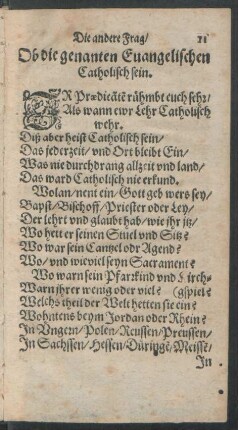 Die andere Frag/ 21
Ob die genanten Euangelischen
Catholisch sein.
ER Prædicätē rühmbt euch sehr/
Als wann ewr Lehr Catholisch
wehr.
Diß aber heist Catholisch sein/
Das jederzeit/ vnd Ort bleibt Ein/
Was nie durchdrang allzeit vnd land/
Das ward Catholisch nie erkund.
Wolan/ nent ein/ Gott geb wers sey/
Bapst/ Bischoff/ Priester oder Ley/
Der lehrt vnd glaubt hab/ wie jhr itz/
Wo hett er seinen Stuel vnd Sitz?
Wo war sein Cantzel odr Agend?
Wo/ vnd wieviel seyn Sacrament?
Wo warn sein Pfarkind vnd Kirch-
Warn jhrer wenig oder viel? (gspiel?
Welchs theil der Welt hetten sie ein?
Wohntens beym Jordan oder Rhein?
In Vngern/ Polen/ Reussen/ Preussen/
In Sachssen/ Hessen/ Düringē/ Meissē/
In